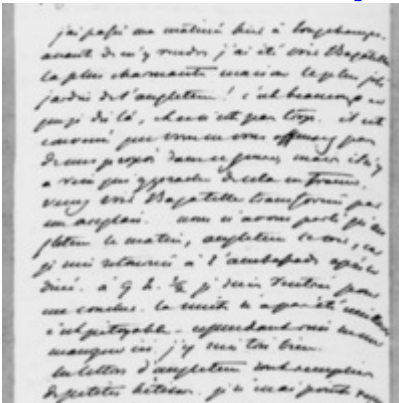 j'ai passé ma matinée hier à Longchamps.
avant de m'y rendre j'ai été voir Bagatelle
la plus charmante maison le plus joli
jardin de l'angleterre! c'est beaucoup
que je dis là, ce n'est pas trop. il est
convenu que vous ne vous offensez pas
de mes propos dans ce genre, mais il n'y
a rien qui approche de cela en france.
venez voir Bagatelle transformé par
un anglais. nous n'avons parlé qu'an
gleterre le matin, angleterre le soir, car
je suis retourné à l'ambassade après le
diné. à 9 h. ½ je suis rentré pour
me coucher. la nuit n'a pas été meilleure
c'est pitoyable. cependant rien ne me
manque ici, j'y suis très bien.
les lettres d'angleterre sont remplies
de petites bêtises. je n'ai point